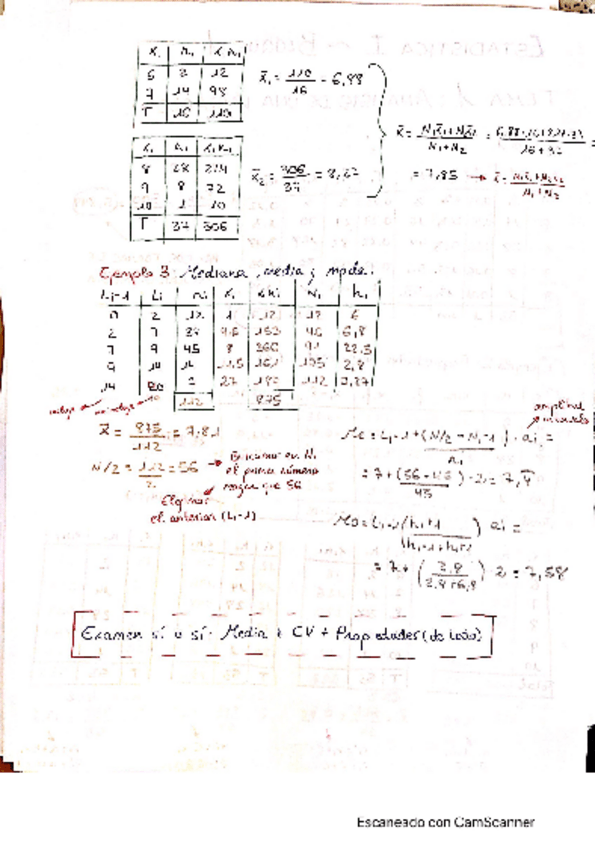 xi ni xi ni
6 2 12
7 14 98
T 16 110
x̄₁ = 110/16 = 6,88
xi ni xi ni
8 28 224
9 8 72
10 1 10
T 37 306
x̄₂ = 306/37 = 8,27
x̄ = N₁x̄₁+N₂x̄₂ / N₁+N₂ =
= 7,85 → x̄ = N₁x̄₁+N₂x̄₂ / N₁+N₂
Ejemplo 3 Mediana, media y moda.
Li-1 Li ni xi xi ni Ni hi
0 2 12 1 12 12 6
2 7 28 153 6,8
7 9 45 8 360 22,5
9 14 161 2,8
14 20 27 112
112 875
x̄ = 875/112 = 7,81
N/2 = 112/2 = 56 → En Ni
el primer número
mayor que 56
el anterior (Li-1)
amplitud
intervalo
Me = Li-1+(N/2 - Ni-1 / ni) · ai =
= 7+(56-46 / 45) · 2 = 7,4
Mo = Li-1+(hi+1 / hi-1+hi+1) · ai =
= 7+(2,8 / 2,8+6,8) · 2 = 7,58
Examen sí o sí: Media + CV + Propiedades (de todo)
Escaneado con CamScanner